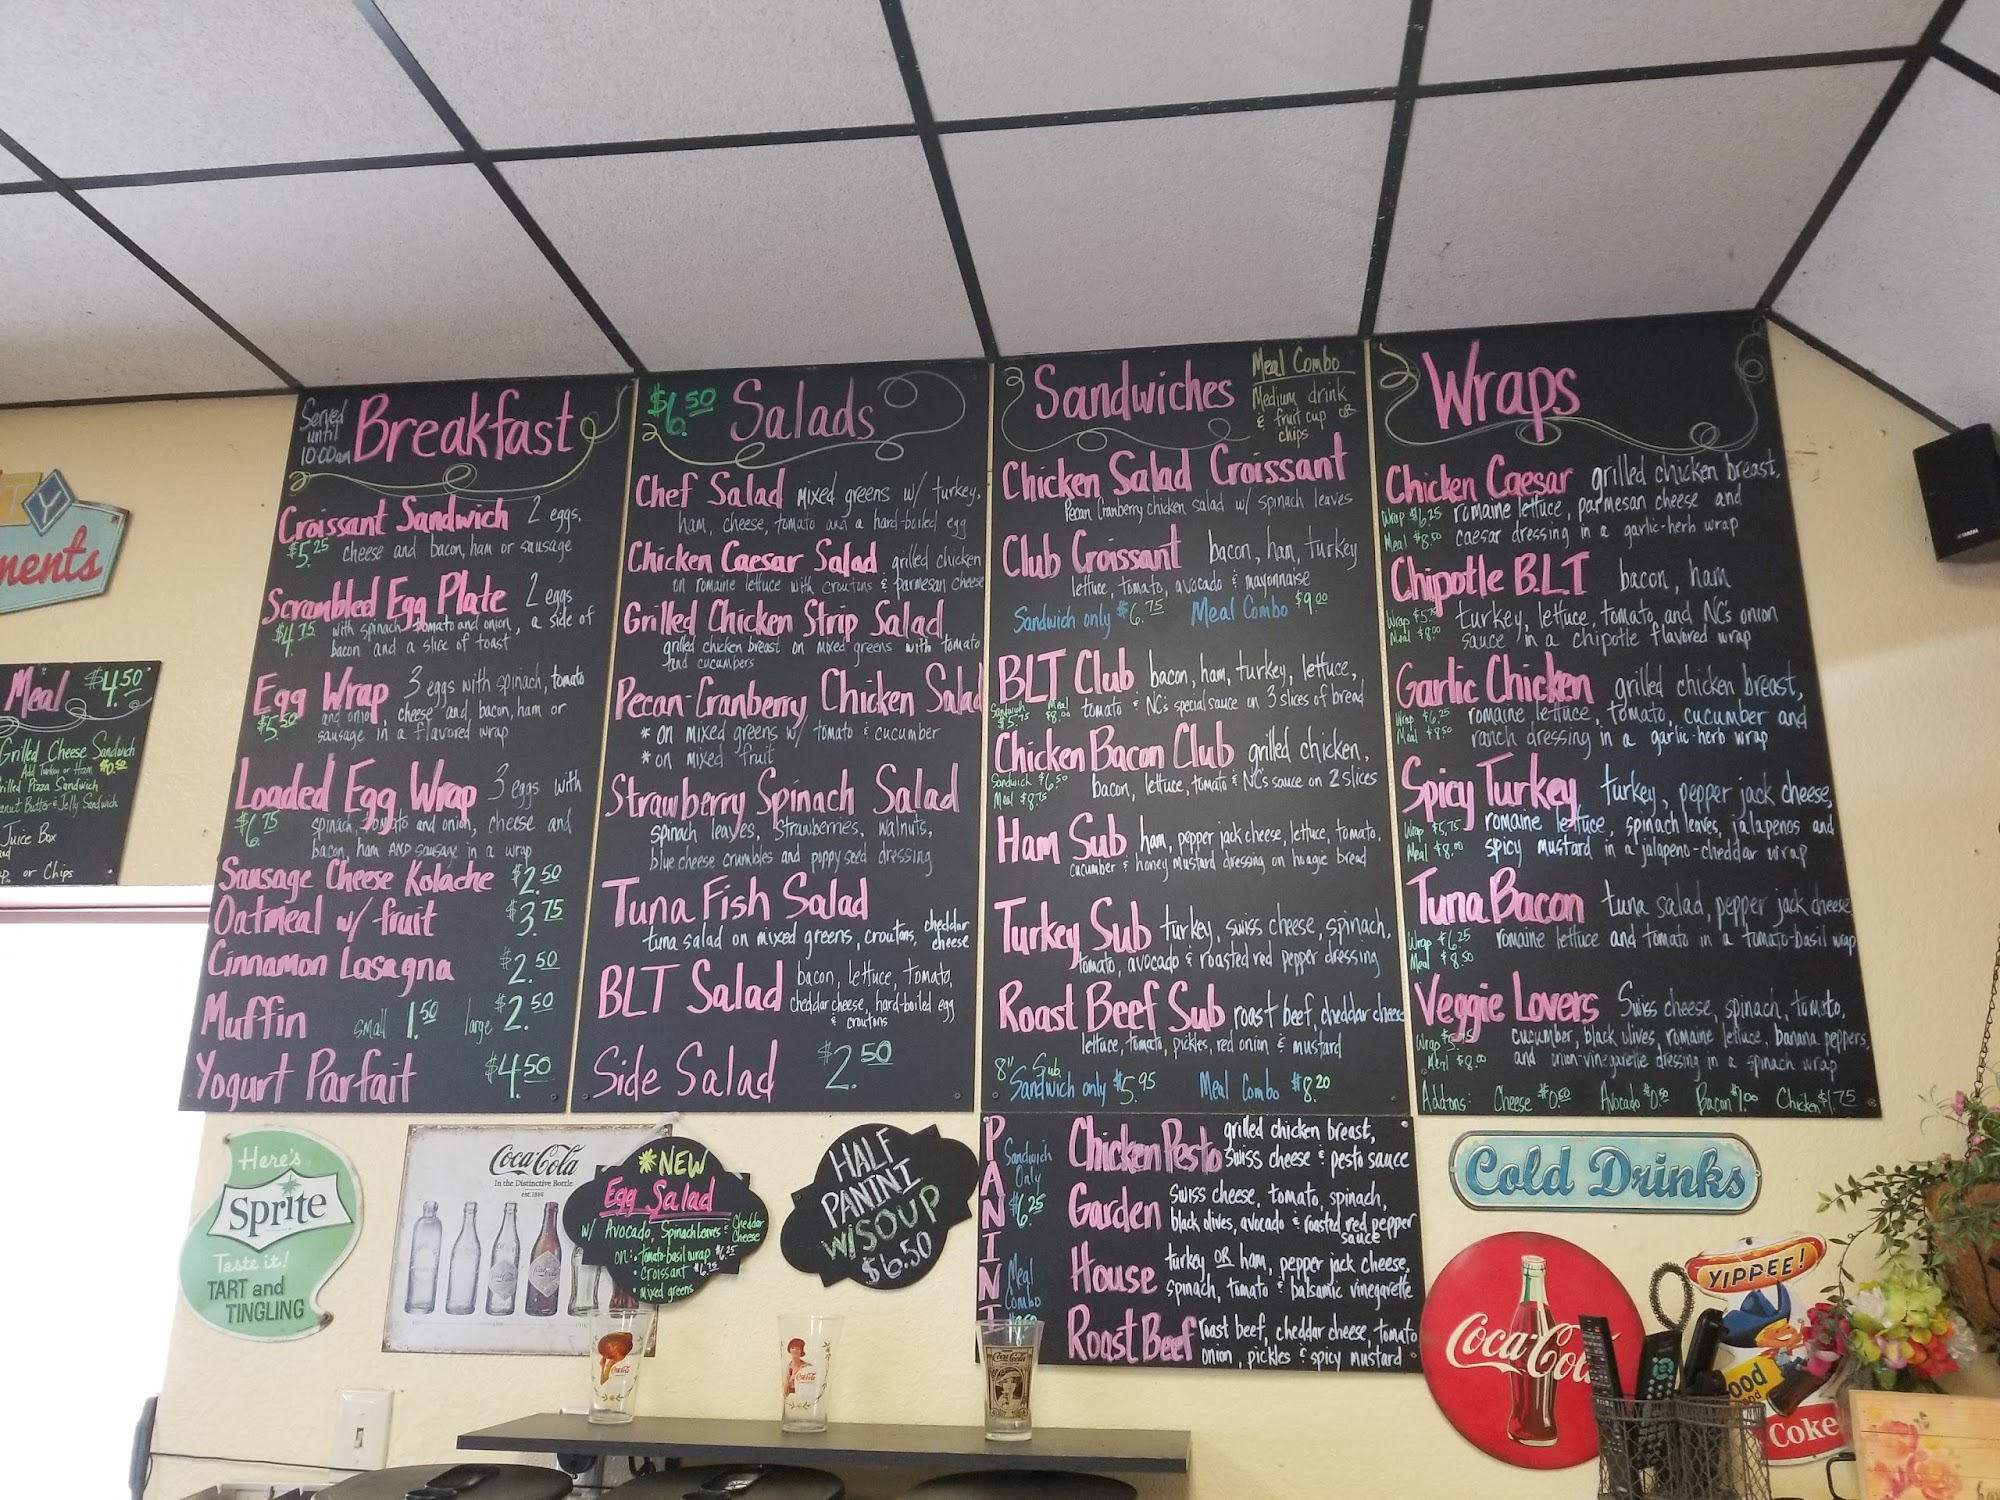 Served
until
10:00am
Breakfast
Croissant Sandwich 2 eggs,
$5.25 cheese and bacon, ham or sausage
Scrambled Egg Plate 2 eggs
$4.75 with spinach, tomato and onion, a side of
bacon and a slice of toast
Egg Wrap 3 eggs with spinach, tomato
$5.50 and onion, cheese and bacon, ham or
sausage in a flavored wrap
Loaded Egg Wrap 3 eggs with
$6.75 spinach, tomato and onion, cheese and
bacon, ham AND sausage in a wrap
Sausage Cheese Kolache $2.50
Oatmeal w/ fruit $3.75
Cinnamon Lasagna $2.50
Muffin small 1.50 large $2.50
Yogurt Parfait $4.50
$6.50 Salads
Chef Salad mixed greens w/ turkey,
ham, cheese, tomato and a hard-boiled egg
Chicken Caesar Salad grilled chicken
on romaine lettuce with croutons & parmesan cheese
Grilled Chicken Strip Salad
grilled chicken breast on mixed greens with tomato
and cucumbers
Pecan-Cranberry Chicken Salad
* on mixed greens w/ tomato & cucumber
* on mixed fruit
Strawberry Spinach Salad
spinach leaves, strawberries, walnuts,
blue cheese crumbles and poppy seed dressing
Tuna Fish Salad
tuna salad on mixed greens, croutons, cheddar
cheese
BLT Salad bacon, lettuce, tomato,
cheddar cheese, hard-boiled egg
& croutons
Side Salad $2.50
Sandwiches
Meal Combo
Medium drink
& fruit cup or
chips
Chicken Salad Croissant
Pecan Cranberry chicken salad w/ spinach leaves
Club Croissant bacon, ham, turkey
lettuce, tomato, avocado & mayonnaise
Sandwich only $6.75 Meal Combo $9.00
BLT Club bacon, ham, turkey, lettuce,
Sandwich $5.75 Meal $8.00 tomato & NC's special sauce on 3 slices of bread
Chicken Bacon Club grilled chicken,
Sandwich $6.50 bacon, lettuce, tomato & NC's sauce on 2 slices
Meal $8.75
Ham Sub ham, pepper jack cheese, lettuce, tomato,
cucumber & honey mustard dressing on hoagie bread
Turkey Sub turkey, swiss cheese, spinach,
tomato, avocado & roasted red pepper dressing
Roast Beef Sub roast beef, cheddar cheese
lettuce, tomato, pickles, red onion & mustard
8" Sub
Sandwich only $5.95 Meal Combo $8.20
Wraps
Chicken Caesar grilled chicken breast,
Wrap $6.25 romaine lettuce, parmesan cheese and
Meal $8.50 caesar dressing in a garlic-herb wrap
Chipotle B.L.T bacon, ham
Wrap $5.75 turkey, lettuce, tomato, and NC's onion
Meal $8.00 sauce in a chipotle flavored wrap
Garlic Chicken grilled chicken breast,
Wrap $6.25 romaine lettuce, tomato, cucumber and
Meal $8.50 ranch dressing in a garlic-herb wrap
Spicy Turkey turkey, pepper jack cheese,
Wrap $5.75 romaine lettuce, spinach leaves, jalapenos and
Meal $8.00 spicy mustard in a jalapeno-cheddar wrap
Tuna Bacon tuna salad, pepper jack cheese
Wrap $6.25 romaine lettuce and tomato in a tomato-basil wrap
Meal $8.50
Veggie Lovers Swiss cheese, spinach, tomato,
Wrap $5.75 cucumber, black olives, romaine lettuce, banana peppers,
Meal $8.00 and onion-vinegarette dressing in a spinach wrap
Add-ons: Cheese $0.50 Avocado $0.50 Bacon $1.00 Chicken $1.75
PANINI
Sandwich
Only
$6.25
Meal
Combo
Chicken Pesto grilled chicken breast,
swiss cheese & pesto sauce
Garden swiss cheese, tomato, spinach,
black olives, avocado & roasted red pepper
sauce
House turkey OR ham, pepper jack cheese,
spinach, tomato & balsamic vinegarette
Roast Beef roast beef, cheddar cheese, tomato
onion, pickles & spicy mustard
Meal $4.50
Grilled Cheese Sandwich
Add Turkey or Ham $0.50
Pizza Sandwich
Butter & Jelly Sandwich
Juice Box
or Chips
Here's
Sprite
Taste it!
TART and
TINGLING
Coca-Cola
In the Distinctive Bottle
*NEW
Egg Salad
w/ Avocado, Spinach Leaves & Cheddar
Cheese
on: • tomato-basil wrap $6.25
• Croissant $6.75
• Mixed greens
HALF
PANINI
W/SOUP
$6.50
Cold Drinks
Coca-Cola
YIPPEE!
Coke
Coca-Cola
Coca-Cola
Coca-Cola
YAMAHA